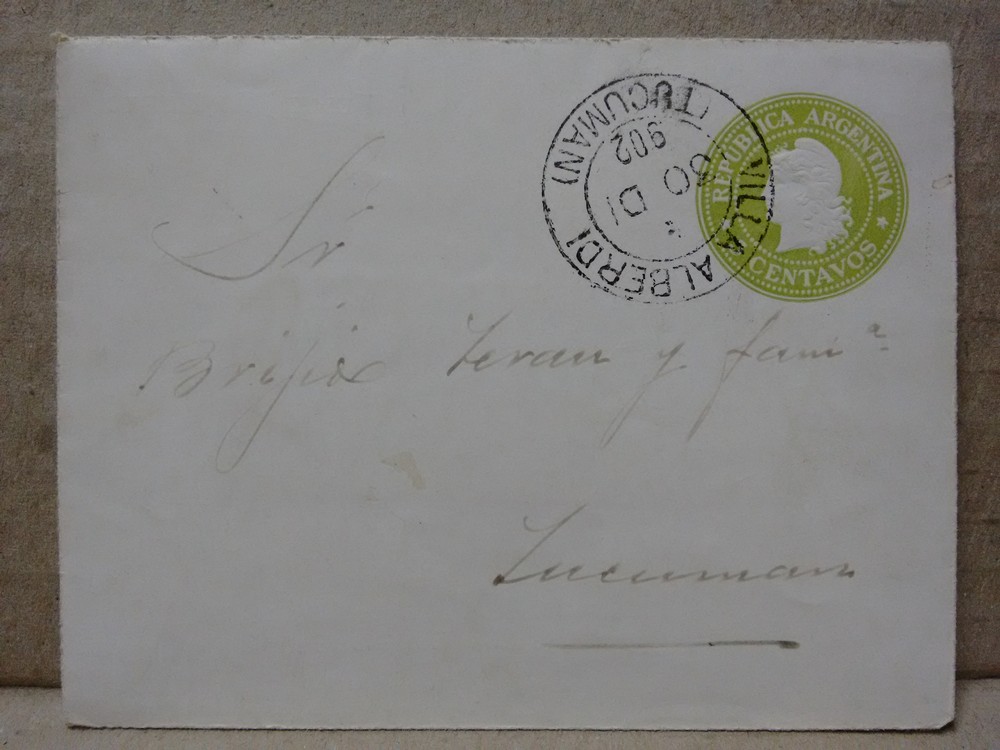 VILLA ALBERDI (TUCUMAN)
30 DI
902
REPÚBLICA ARGENTINA
CENTAVOS
Sr
Brijido Teran y famª
Tucuman